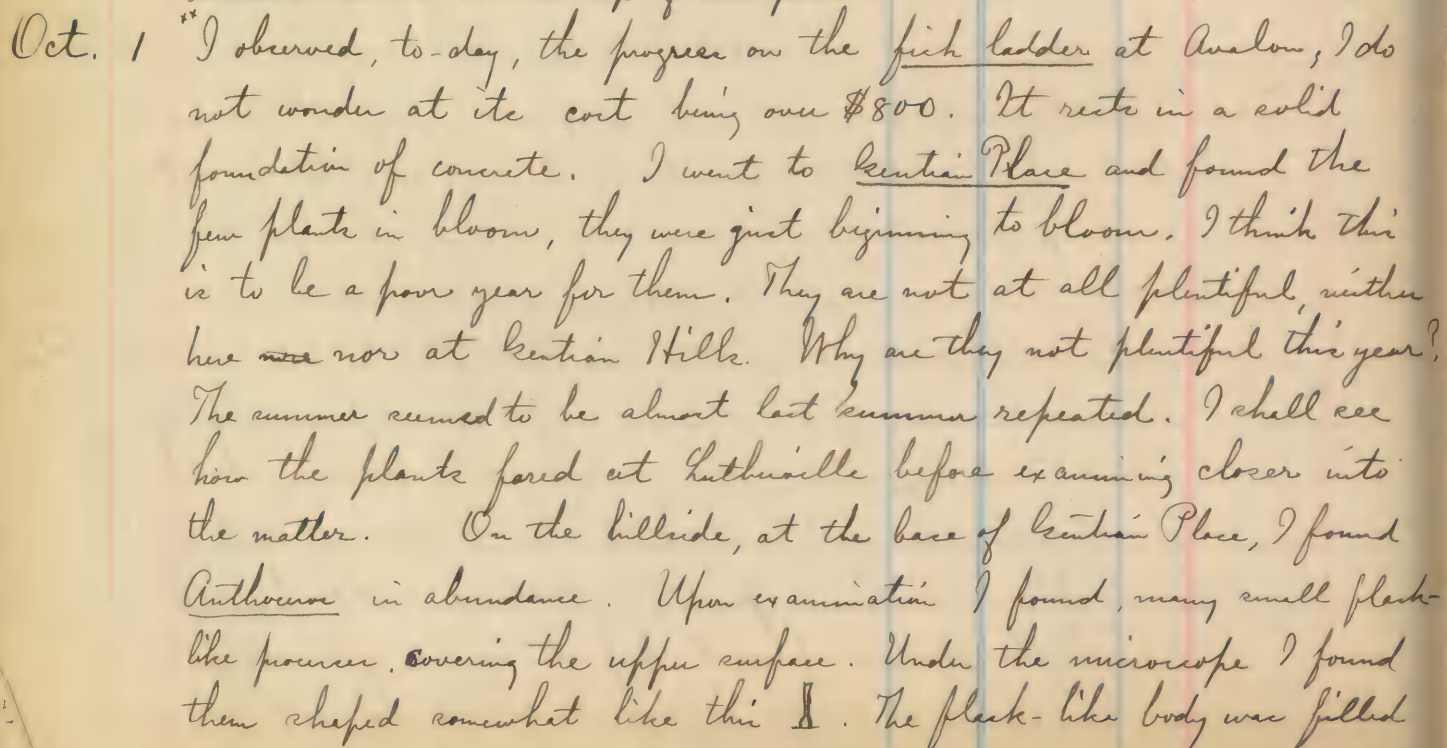 Oct. 1 "I observed, to-day, the progress on the fish ladder at Avalon; I do
not wonder at its cost being over $800. It rests in a solid
foundation of concrete. I went to Gentian Place and found the
few plants in bloom, they were just beginning to bloom. I think this
is to be a poor year for them. They are not at all plentiful, neither
here nor at Gentian Hills. Why are they not plentiful this year?
The summer seemed to be almost last summer repeated. I shall see
how the plants fared at Lutherville before examining closer into
the matter. On the hillside, at the base of Gentian Place, I found
Anthoceros in abundance. Upon examination I found, many small flask-
like processes, covering the upper surface. Under the microscope I found
them shaped somewhat like this . The flask-like body was filled